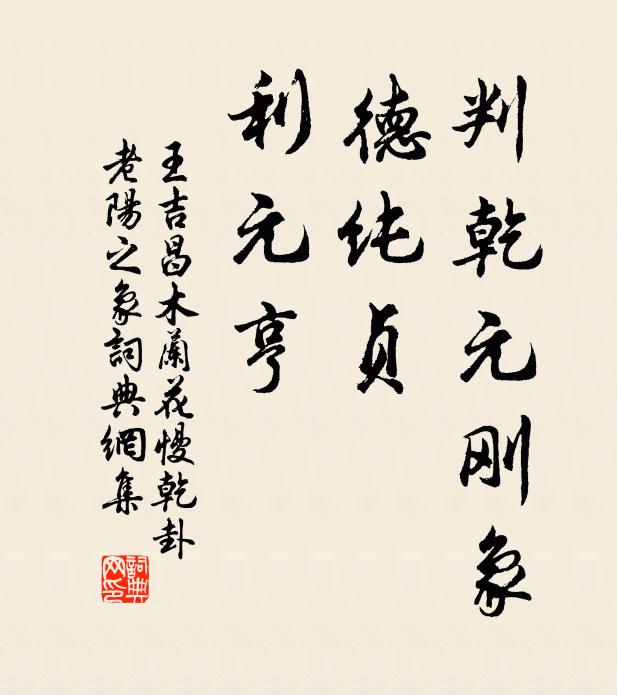 判乾元刚象
德纯贞
利元亨
王吉昌木蘭花慢乾卦
老陽之象詞典網集
詞典
网印